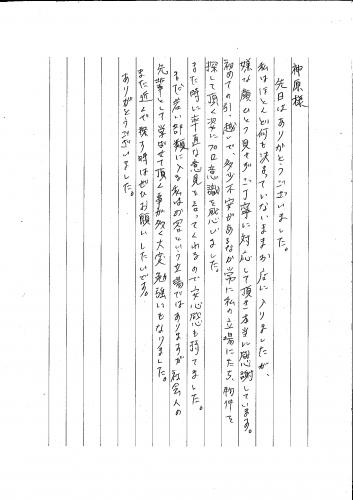 神原様
先日はありがとうございました。
私はほとんど何も決まっていないままお店に入りましたが、
嫌な顔ひとつ見せずご丁寧に対応して頂き本当に感謝しています。
初めての引っ越しで、多少不安がある中、常に私の立場にたち、物件を
探して頂く姿にプロ意識を感じました。
また時に率直な意見を言ってくれるので安心感も持てました。
まだ若い部類に入る私はお客という立場ではありますが社会人の
先輩として学ばせて頂く事が多く大変勉強いもなりました。
また近々や探す時はぜひお願いしたいです。
ありがとうございました。